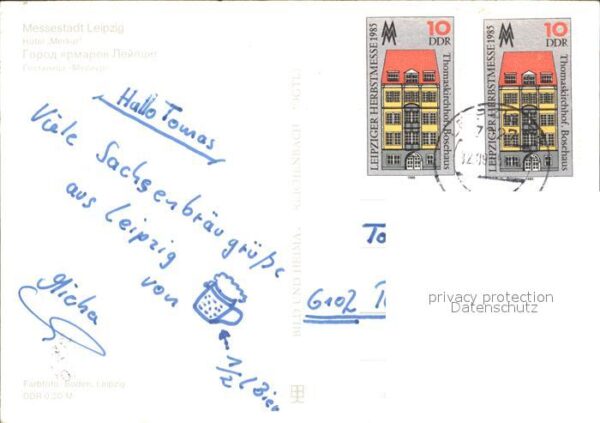 Messestadt Leipzig
Hotel „Merkur"
Город ярмарок Лейпциг
Гостиница „Меркур"
Hallo Tomas
Viele Sachsenbräugrüße
aus Leipzig
von
Micha
1/2 l Bier
Farbfoto: Boden, Leipzig
DDR 0,20 M
BILD UND HEIMAT REICHENBACH
10
DDR
LEIPZIGER HERBSTMESSE 1985
Thomaskirchhof, Boschaus
1985
10
DDR
LEIPZIGER HERBSTMESSE 1985
Thomaskirchhof, Boschaus
1985
To
privacy protection
Datenschutz